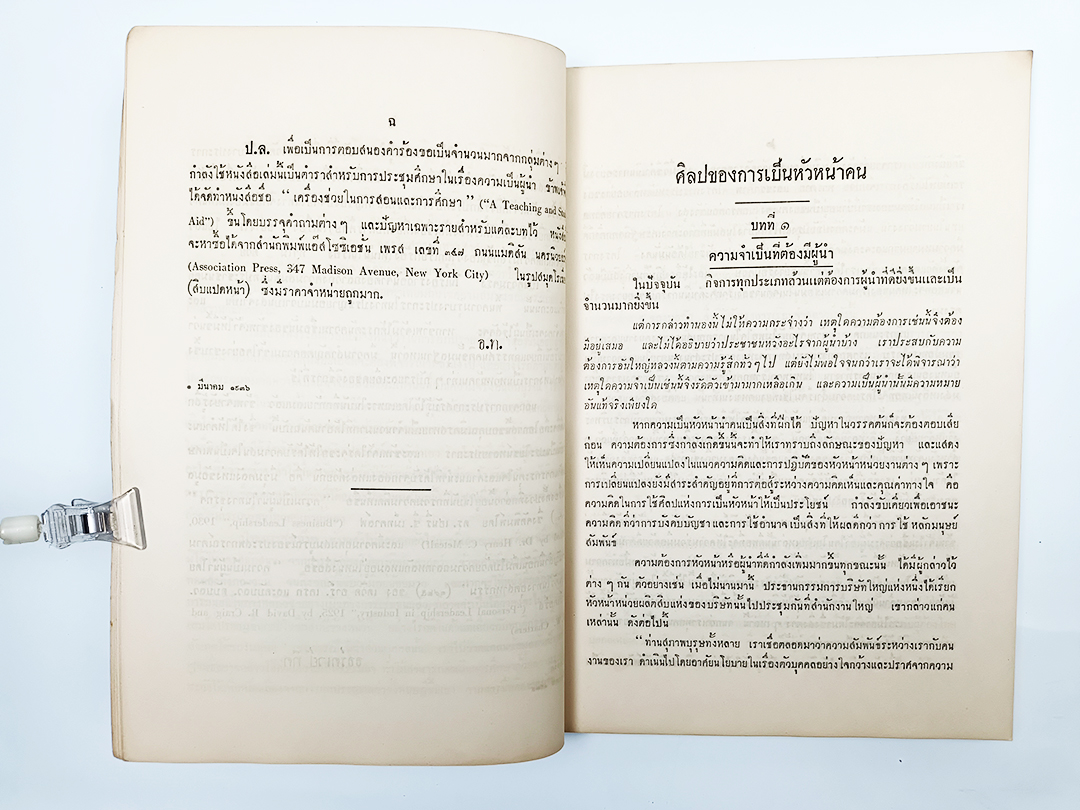 ฉ
ป.ล. เพื่อเป็นการตอบสนองคำร้องขอเป็นจำนวนมากจากกลุ่มต่าง ๆ
กำลังใช้หนังสือเล่มนี้เป็นตำราสำหรับการประชุมศึกษาในเรื่องความเป็นผู้นำ
ได้จัดทำหนังสือชื่อ “ เครื่องช่วยในการสอนและการศึกษา ” (“A Teaching and
Aid”) ขึ้นโดยบรรจุคำถามต่าง ๆ และปัญหาเฉพาะรายสำหรับแต่ละบทไว้
จะหาซื้อได้จากสำนักพิมพ์แอ๊สโซซิเอชั่น เพรส เลขที่ ๓๔๗ ถนนแมดิสัน
(Association Press, 347 Madison Avenue, New York City) ในรูปสมุดโรเนียว
(สิบแปดหน้า) ซึ่งมีราคาจำหน่ายถูกมาก.
อ.ท.
๑ มีนาคม ๑๙๓๖
ศิลปของการเป็นหัวหน้าคน
บทที่ ๑
ความจำเป็นที่ต้องมีผู้นำ
ในปัจจุบัน กิจการทุกประเภทล้วนแต่ต้องการผู้นำที่ดียิ่งขึ้นและเป็น
จำนวนมากยิ่งขึ้น
แต่การกล่าวทำนองนี้ไม่ให้ความกระจ่างว่า เหตุใดความต้องการเช่นนี้จึงต้อง
มีอยู่เสมอ และไม่ได้อธิบายว่าประชาชนหวังอะไรจากผู้นำบ้าง เราประสบกับความ
ต้องการอันใหญ่หลวงนี้ตามความรู้สึกทั่ว ๆ ไป แต่ยังไม่พอใจจนกว่าเราจะได้พิจารณาว่า
เหตุใดความจำเป็นเช่นนี้จึงรัดตัวเข้ามามากเหลือเกิน และความเป็นผู้นำนั้นมีความหมาย
อันแท้จริงเพียงใด
หากความเป็นหัวหน้านำคนเป็นสิ่งที่ฝึกได้ ปัญหาในวรรคต้นก็จะต้องตอบเสีย
ก่อน ความต้องการซึ่งกำลังเกิดขึ้นนี้จะทำให้เราทราบถึงลักษณะของปัญหา และแสดง
ให้เห็นความเปลี่ยนแปลงในแนวความคิดและการปฏิบัติของหัวหน้าหน่วยงานต่าง ๆ เพราะ
การเปลี่ยนแปลงยังมีสาระสำคัญอยู่ที่การต่อสู้ระหว่างความคิดเห็นและคุณค่าทางใจ คือ
ความคิดในการใช้ศิลปแห่งการเป็นหัวหน้าให้เป็นประโยชน์ กำลังขับเคี่ยวเพื่อเอาชนะ
ความคิดที่ว่าการบังคับบัญชาและการใช้อำนาจเป็นสิ่งที่ให้ผลดีกว่าการใช้หลักมนุษย
สัมพันธ์
ความต้องการหัวหน้าหรือผู้นำที่ดีกำลังเพิ่มมากขึ้นทุกขณะนั้น ได้มีผู้กล่าวไว้
ต่าง ๆ กัน ตัวอย่างเช่น เมื่อไม่นานมานี้ ประธานกรรมการบริษัทใหญ่แห่งหนึ่งได้เรียก
หัวหน้าหน่วยผลิตสิบแห่งของบริษัทนั้นไปประชุมกันที่สำนักงานใหญ่ เขากล่าวแก่คน
เหล่านั้น ดังต่อไปนี้
“ท่านสุภาพบุรุษทั้งหลาย เราเชื่อตลอดมาว่าความสัมพันธ์ระหว่างเรากับคน
งานของเรา ดำเนินไปโดยอาศัยนโยบายในเรื่องตัวบุคคลอย่างใจกว้างและปราศจากความ